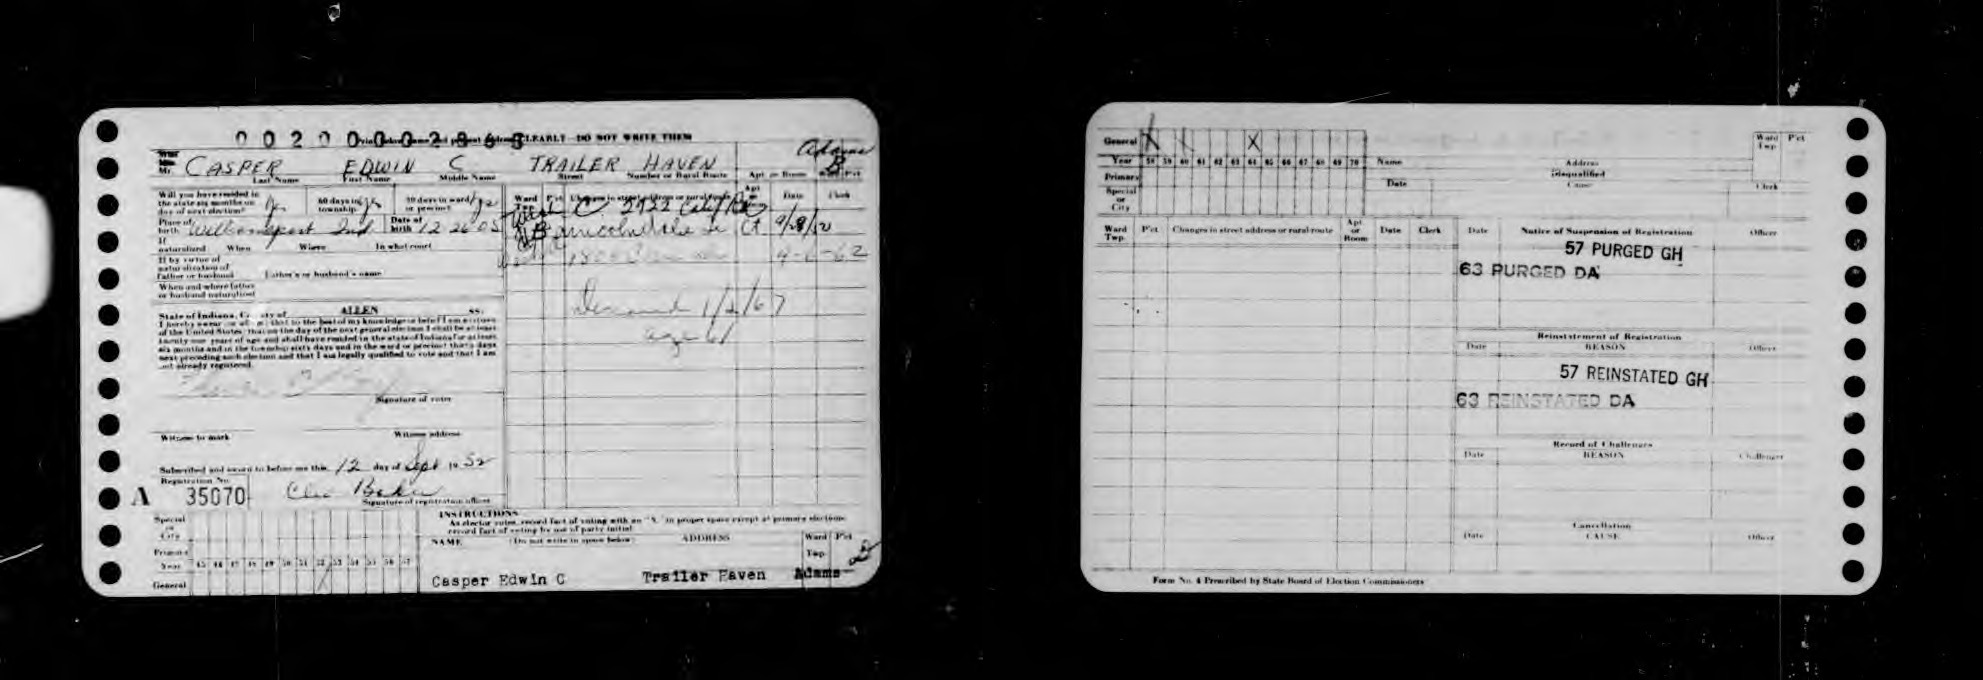 0020000286
Print below name and present address CLEARLY—DO NOT WRITE THEM
Adams
Mr. CASPER EDWIN C TRAILER HAVEN B
Last Name First Name Middle Name Street Number or Rural Route Apt or Room Ward Pct
Will you have resided in the state six months on day of next election? yes 60 days in township yes 30 days in ward or precinct yes
Ward Twp. Pct. Changes in street address or rural route Apt or Room Date Clerk
C 2922 Calif
Place of birth Williamsport Ind Date of birth 12 26 05
B Lincolndale Ct 9/28/
If naturalized When Where In what court
9-6-62
If by virtue of naturalization of father or husband Father's or husband's name
When and where father or husband naturalized
1/2/67
age 61
State of Indiana, County of ALLEN ss:
I hereby swear (or affirm) that to the best of my knowledge or belief I am a citizen
of the United States; that on the day of the next general election I shall be at least
twenty-one years of age and shall have resided in the state of Indiana for at least
six months and in the township sixty days and in the ward or precinct thirty days
next preceding such election and that I am legally qualified to vote and that I am
not already registered.
Signature of voter
Witness to mark Witness address
Subscribed and sworn to before me this 12 day of Sept 19 52
Registration No.
A 35070 Cleo Baker
Signature of registration officer
INSTRUCTIONS
As elector votes, record fact of voting with an "X" in proper space except at primary elections
record fact of voting by use of party initial.
Special or City
Primary
Year 45 46 47 48 49 50 51 52 53 54 55 56 57
General
NAME (Do not write in space below) ADDRESS Ward Twp. Pct
Casper Edwin C Trailer Haven Adams
General X X
Year 58 59 60 61 62 63 64 65 66 67 68 69 70
Primary
Special or City
Name Address Ward Twp Pct
Disqualified
Date Cause Clerk
Ward Twp. Pct. Changes in street address or rural route Apt or Room Date Clerk
Date Notice of Suspension of Registration Officer
57 PURGED GH
63 PURGED DA
Reinstatement of Registration
Date REASON Officer
57 REINSTATED GH
63 REINSTATED DA
Record of Challenges
Date REASON Challenger
Cancellation
Date CAUSE Officer
Form No. 4 Prescribed by State Board of Election Commissioners